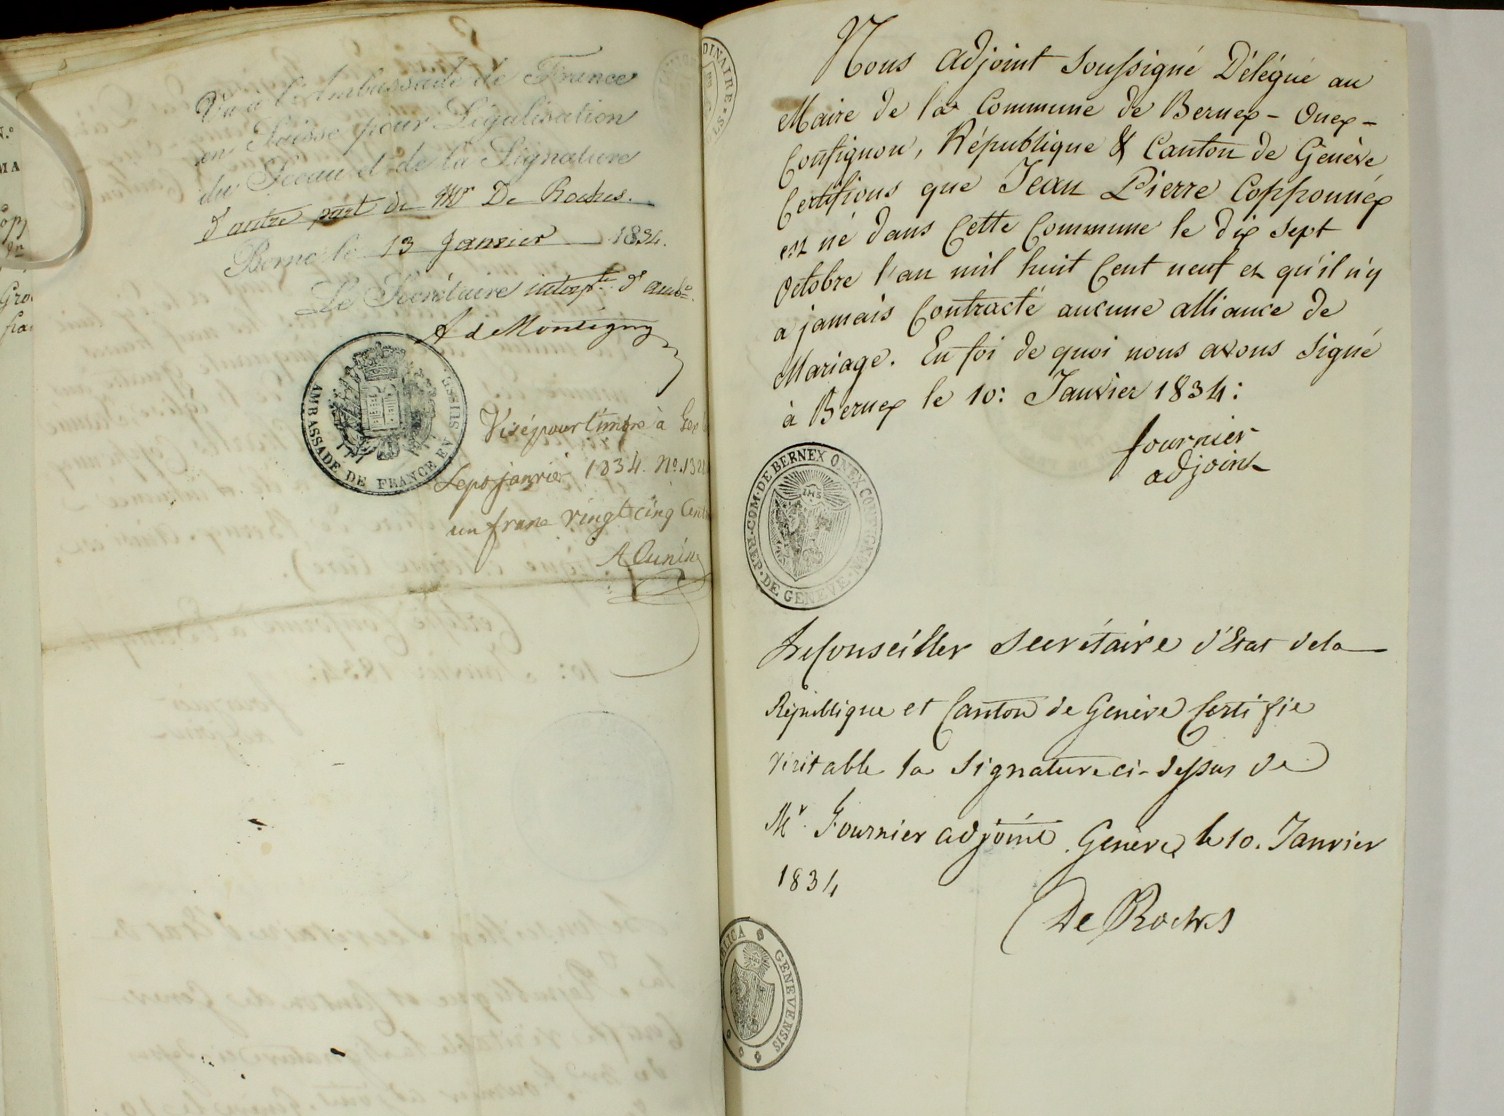 Vu à l'Ambassade de France
en Suisse pour Légalisation
du Sceau et de la Signature
d'autre part de Mr De Roches.
Berne le 13 Janvier 1834.
Le Secrétaire interpte d'ambe.
A de Montigny
AMBASSADE DE FRANCE EN SUISSE
Visé pour timbre à Gex
janvier 1834. No. 13
un franc vingt cinq Cen
Nous adjoint soussigné Délégué au
Maire de la Commune de Bernex - Onex -
Confignon, République & Canton de Genève
Certifions que Jean Pierre Copponnex
est né dans Cette Commune le dix sept
Octobre l'an mil huit Cent neuf et qu'il n'y
a jamais Contracté aucune alliance de
Mariage. En foi de quoi nous avons Signé
à Bernex le 10: Janvier 1834:
fournier
adjoint
COM. DE BERNEX ONEX CONFIGNON
REP. DE GENEVE
Le Conseiller Secrétaire d'Etat de la
République et Canton de Genève Certifie
véritable la signature ci-dessus de
Mr. Fournier adjoint. Genève, le 10. Janvier
1834
De Roches
GENEVENSIS